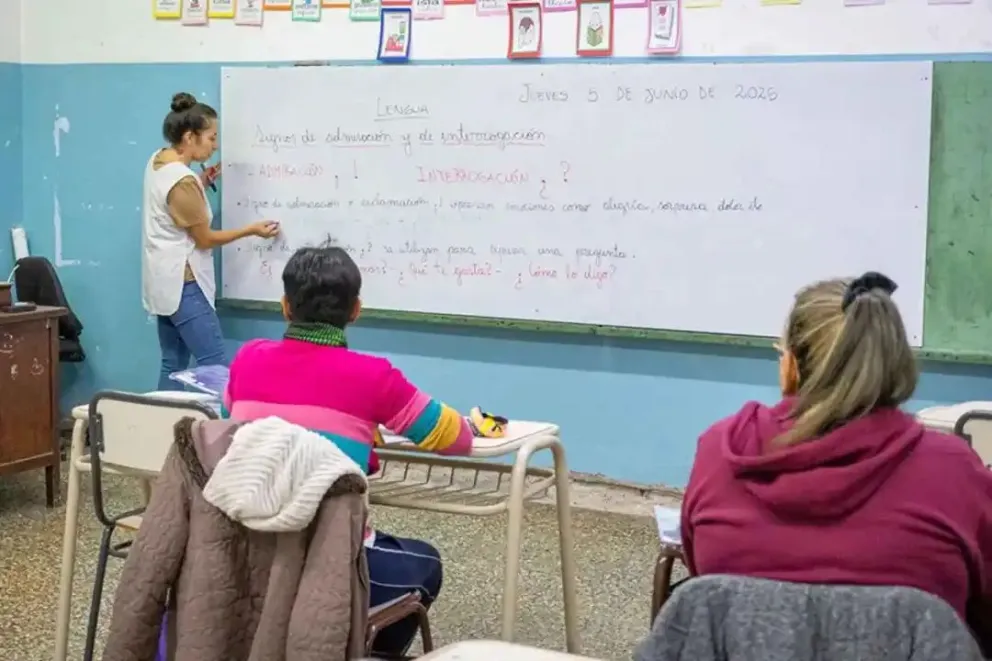 JUEVES 5 DE JUNIO DE 2025
LENGUA
Signos de admiración y de interrogación
ADMIRACIÓN ¡ ! INTERROGACIÓN ¿ ?
• Signo de admiración o exclamación, ! expresan emociones como alegría, sorpresa dolor etc
• Signo de ? se utilizan para hacer una pregunta.
¿Qué te gusta? - ¿Cómo lo digo?